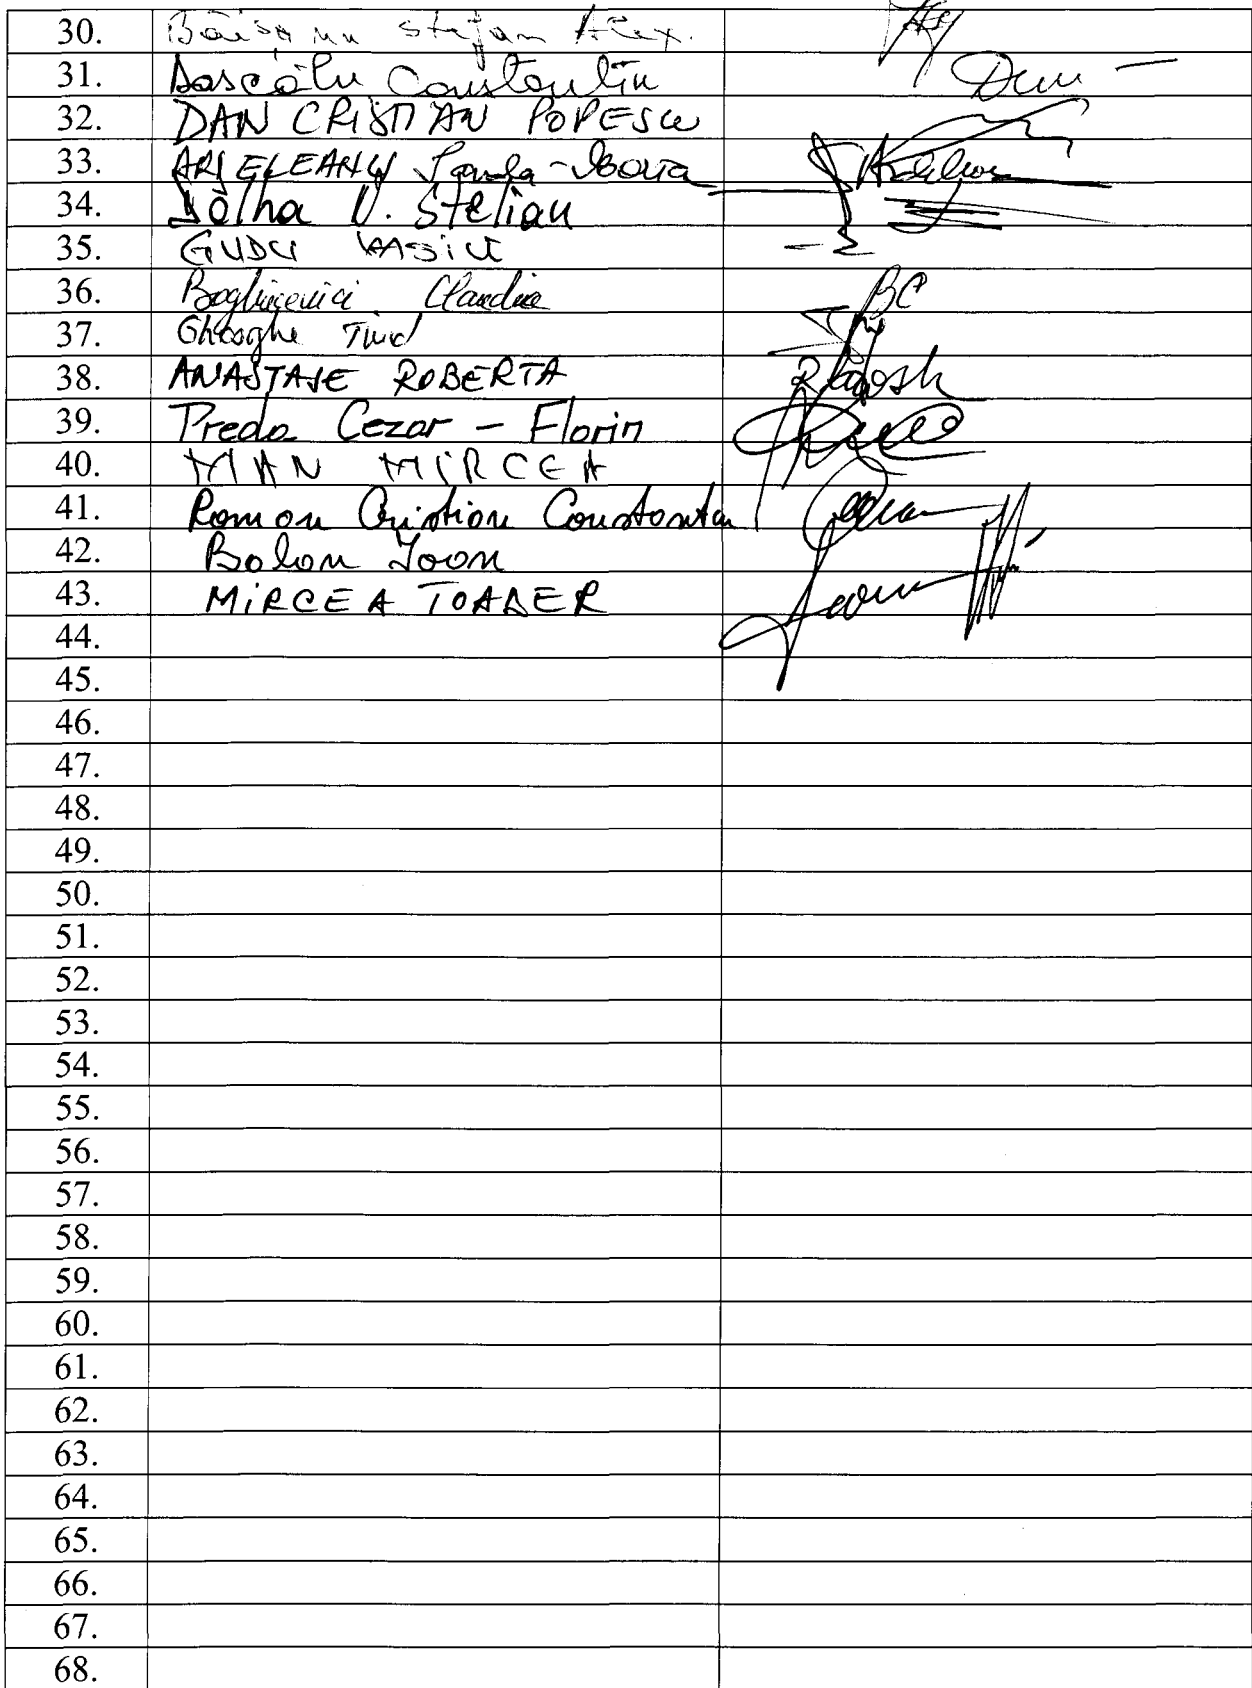 30. Băișanu Stefan Alex.
31. Dascălu Constantin
32. DAN CRISTIAN POPESCU
33. ARGELEANU
34. Dolha V. Stelian
35. GUDU VASILE
36. Boghicevici Claudia BC
37. Gheorghe Tinel
38. ANASTASE ROBERTA
39. Preda Cezar - Florin
40. MAN MIRCEA
41. Roman Cristian Constanta
42. Balan Ioan
43. MIRCEA TOADER
44.
45.
46.
47.
48.
49.
50.
51.
52.
53.
54.
55.
56.
57.
58.
59.
60.
61.
62.
63.
64.
65.
66.
67.
68.